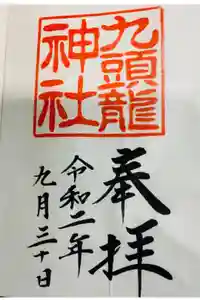 九頭龍
神社
奉拝
令和二年
九月三十日